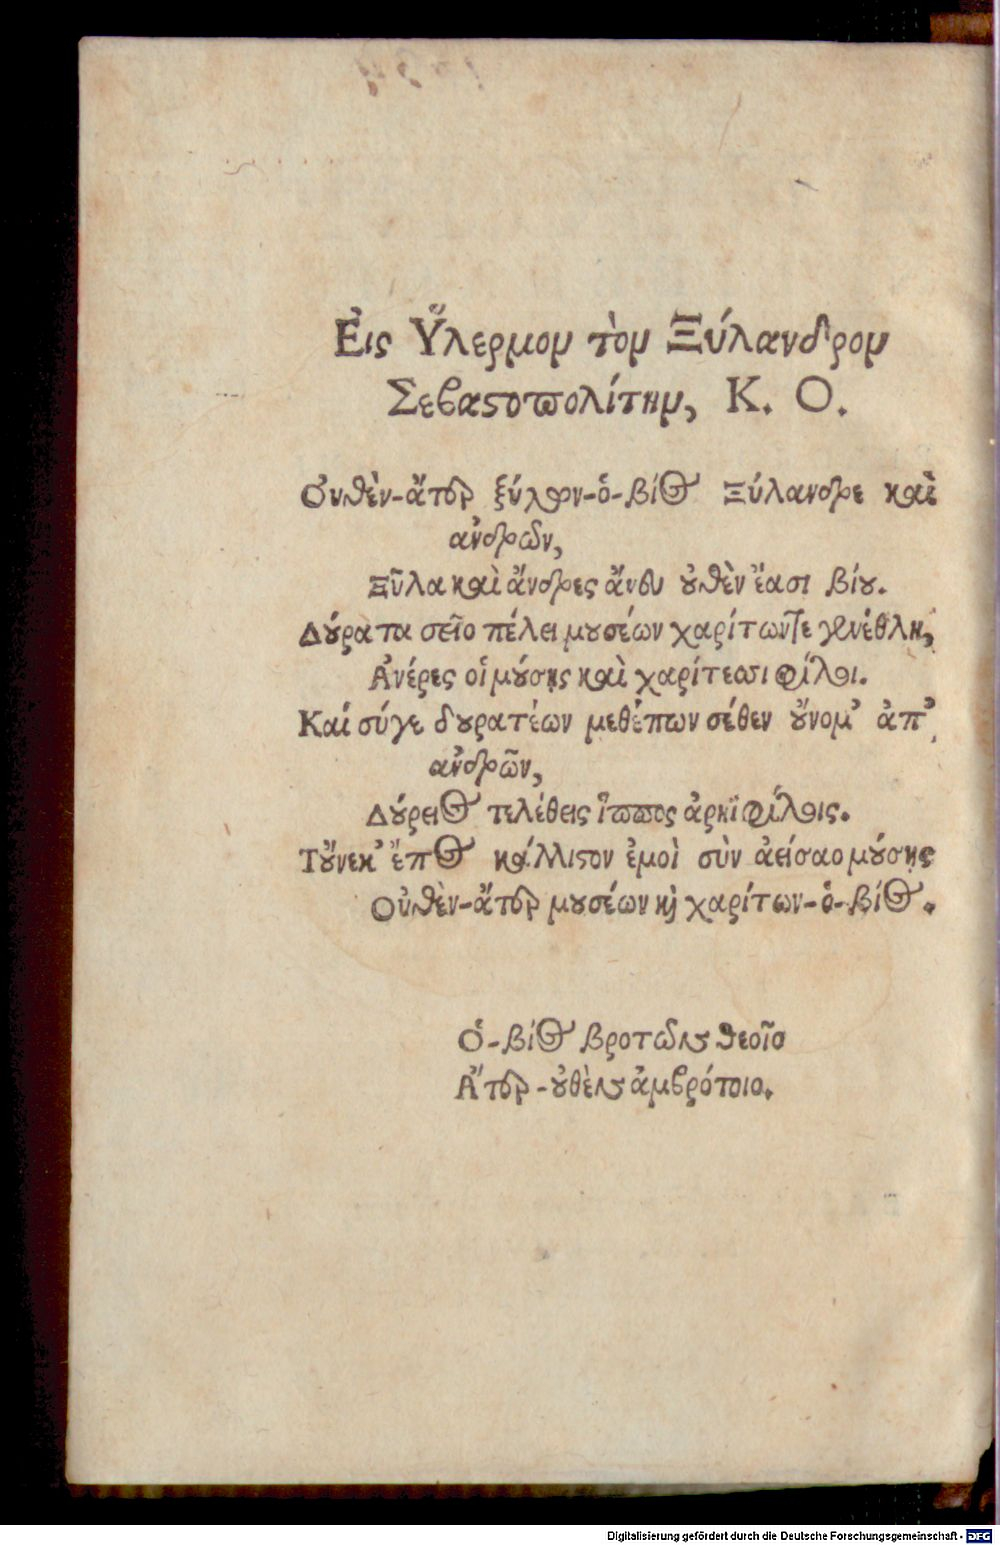 Εἰς Ὕλερμον τὸν Ξύλανδρον
Σεβαστοπολίτην, Κ. Ο.
Οὐθὲν-ἄτερ ξύλων-ὁ-βίος Ξύλανδρε καὶ
ἀνδρῶν,
Ξῦλα καὶ ἄνδρες ἄνευ οὐθὲν ἔασι βίου.
Δούρατα σεῖο πέλει μουσέων χαρίτων τε γενέθλη,
Ἀνέρες οἱ μούσῃς καὶ χαρίτεσσι φίλοι.
Καί σύγε δουρατέων μεθέπων σέθεν οὔνομ' ἀπ'
ἀνδρῶν,
Δούρειος τελέθεις ἵππος ἀρηϊφίλοις.
Τοὔνεκ' ἔπος κάλλιστον ἐμοὶ σὺν ἀείσαο μούσῃς
Οὐθὲν-ἄτερ μουσέων καὶ χαρίτων-ὁ-βίος.
Ὁ-βίος βροτῶν θεοῖο
Ἄτερ-οὐθὲν ἀμβρότοιο.
Digitalisierung gefördert durch die Deutsche Forschungsgemeinschaft - DFG